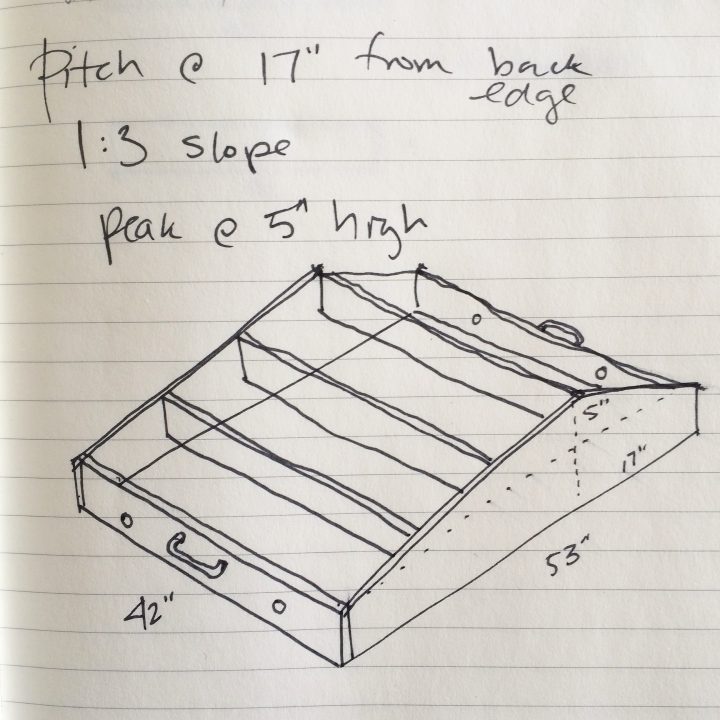 Pitch @ 17" from back
edge
1:3 slope
peak @ 5" high
5"
17"
53"
42"